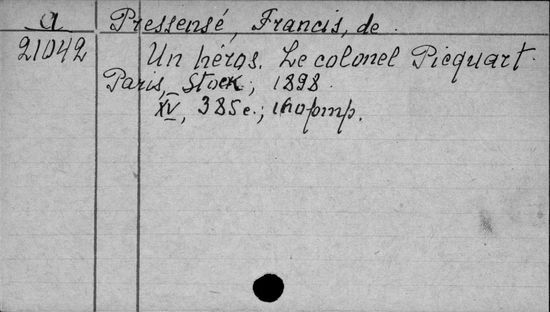 a Pressensé, Francis, de.
21042 Un héros. Le colonel Picquart.
Paris, Stock, 1898.
XV, 385 с.; 1 портр.